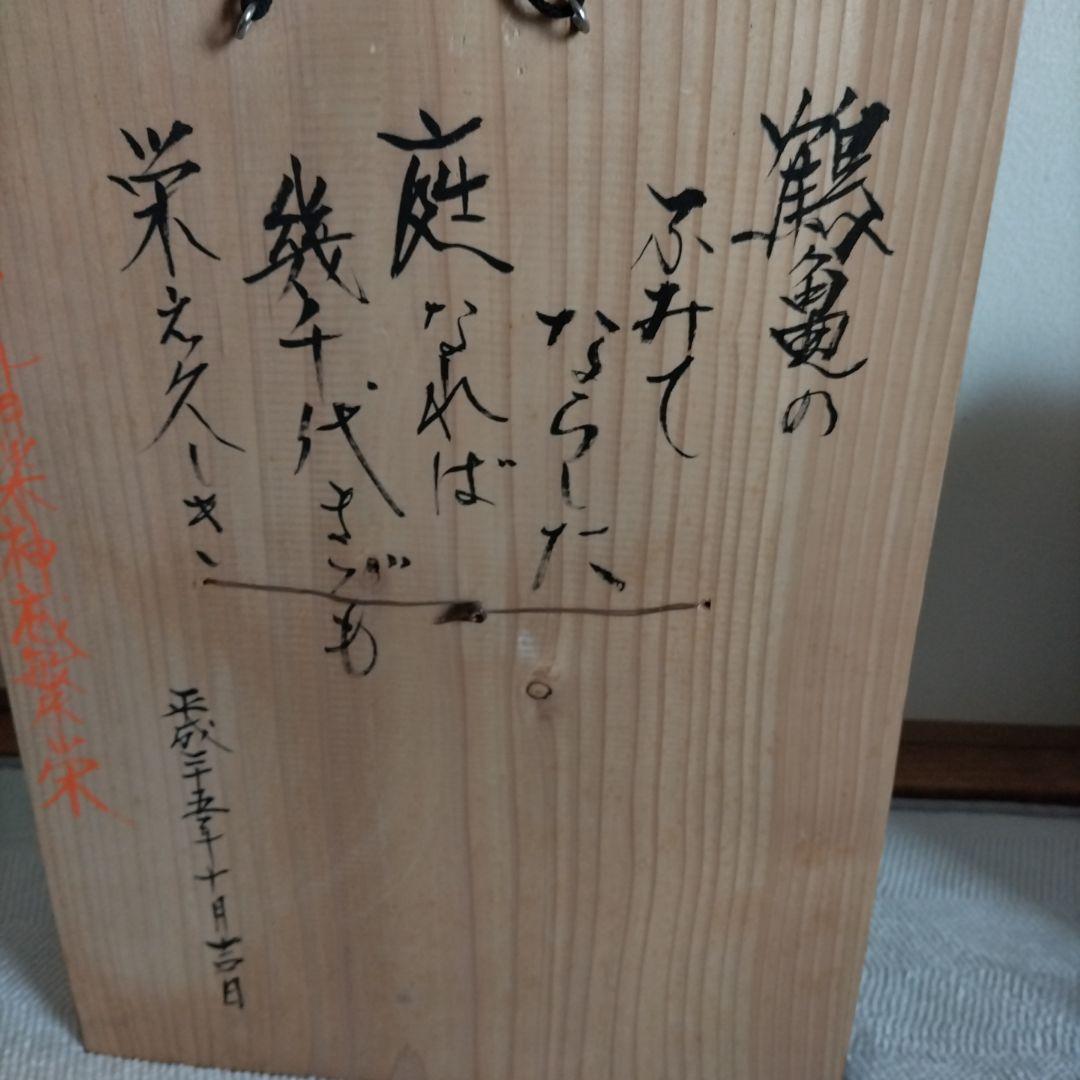 鶴亀の
ふみて
ならした
庭なれば
幾千代までも
栄え久しき
平成二十五年十月吉日
神威繁栄